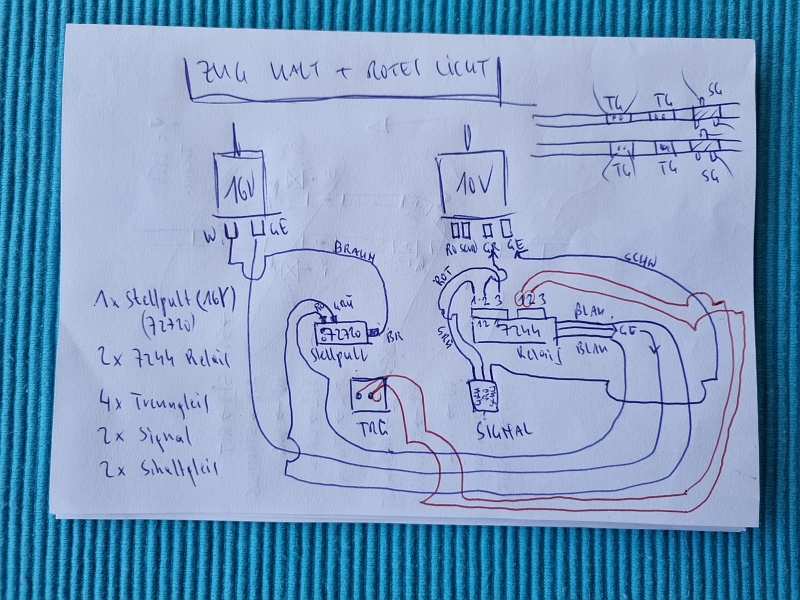 ZUG HALT + ROTES LICHT
TG TG SG
TG TG SG
16V
10V
W GE
RO SCHW GR GE
BRAUN
SCHW
ROT
GRÜ
1 2 3 1 2 3
BLAU
1x Stellpult (16V)
(72720)
72720
BR
12
7244
GE
BLAU
Stellpult
Relais
2x 7244 Relais
4x Trenngleis
TRG
SIGNAL
2x Signal
2x Schaltgleis